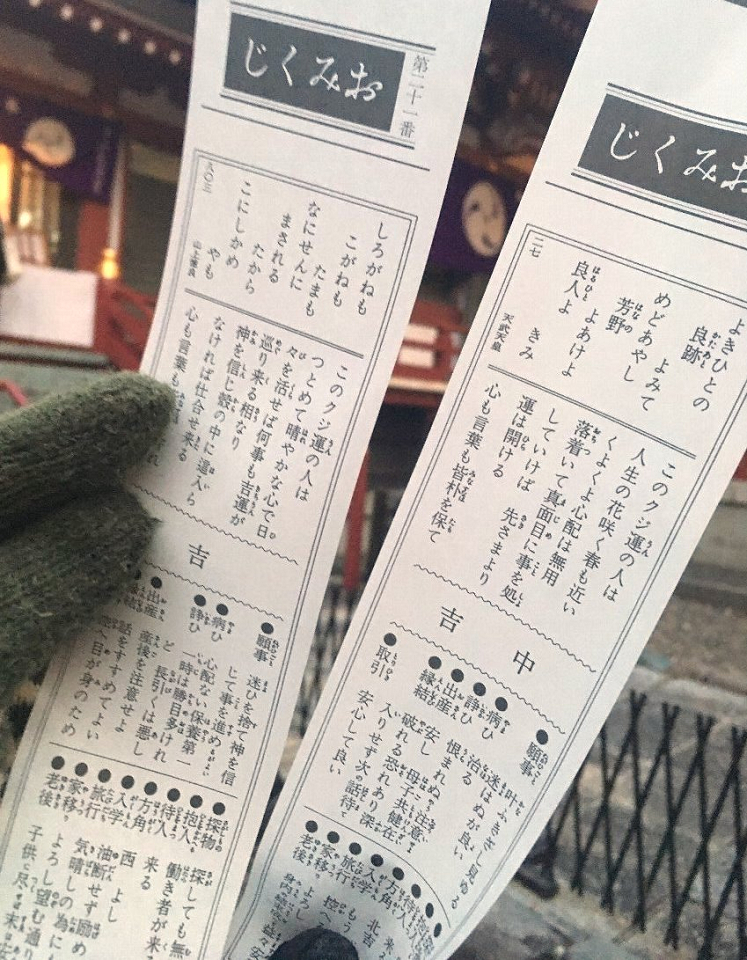 第二十一番
おみくじ
しろがねも
こがねも
たまも
なにせんに
まされる
たから
こにしかめ
やも
山上憶良
八〇三
このクジ運の人は
つとめて晴やかな心で日
々を活せば何事も吉運が
巡り来る相なり
神を信じ
なければ仕合せ来る
心も言葉も
吉
願事 迷ひを捨て神を信
じて事を進め
病ひ 心配ない保養第一
諍ひ 一時は勝目多けれ
ど 長引くは悪し
出産 産後を注意せよ
話をすすめてよい
目が身のため
探物 探しても無
抱人 働き者が来る
待人 来る
方角 西 よし
入学 油断せず励め
旅行 気晴しの為にも
家移り よろし望む通り
老後 子供に尽
おみくじ
よきひとの
良跡
よみて
めどあやし
芳野
よあけよ
良人よ
きみ
天武天皇
二七
このクジ運の人は
人生の花咲く春も近い
くよくよ心配は無用
落着いて真面目に事を処
していけば 先さまより
運は開ける
心も言葉も皆朴を保て
中吉
願事 叶ふきざし見ゆる
迷はぬが良い
病ひ 治る
諍ひ 恨まれぬやう注意
出産 安し 母子共健在
縁結 破れる恐れあり 深
入りせず次の話待て
取引 安心して良い
探
抱人
待人 来
方 北 吉
入学 もう
旅行 控へ
家移り よろし
老後